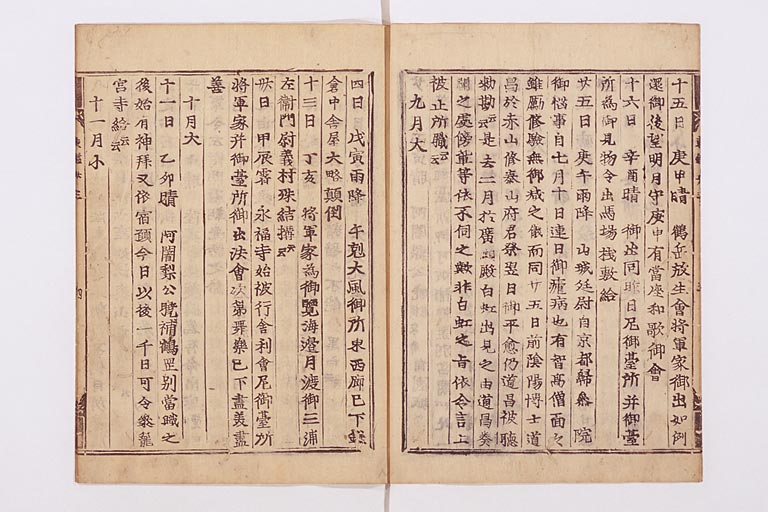 十五日 庚申晴 鶴岳放生會將軍家御出如例
還御後望明月守庚申有當座和歌御會
十六日 辛酉晴 御出同昨日尼御臺所并御臺
所為御見物令出馬場棧敷給
廿五日 庚午雨降 山城廷尉自京都歸參 院
御惱事自七月十日連日御瘧病也有智高僧面々
雖勵修驗無御減之儀而同廿五日前陰陽博士道
昌於赤山修泰山府君祭翌日御平愈仍道昌被聽
勅勘云云是去二月於廣 殿白虹出見之由道昌奏
聞之處傍輩等依不伺之歟非白虹之旨依令言上
被止所職云云
九月大
四日 戊寅雨降 午剋大風御所東西廊已下
倉中舎屋大略顛倒
十三日 丁亥 將軍家為御覽海邊月渡御三浦
左衛門尉義村殊結搆云云
廿日 甲辰霽 永福寺始被行舎利會尼御臺所
將軍家并御臺所御出法會次第舞樂已下盡美盡
善
十月大
十一日 乙卯晴 阿闍梨公曉補鶴罡別當職之
後始有神拜又依宿願今日以後一千日可令參籠
宮寺給云云
十一月小
東鑑廿三
四